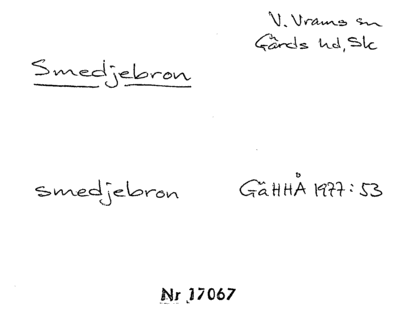 V. Vrams sn
Gärds hd, Sk
Smedjebron
smedjebron GäHHÅ 1977:53
Nr 17067